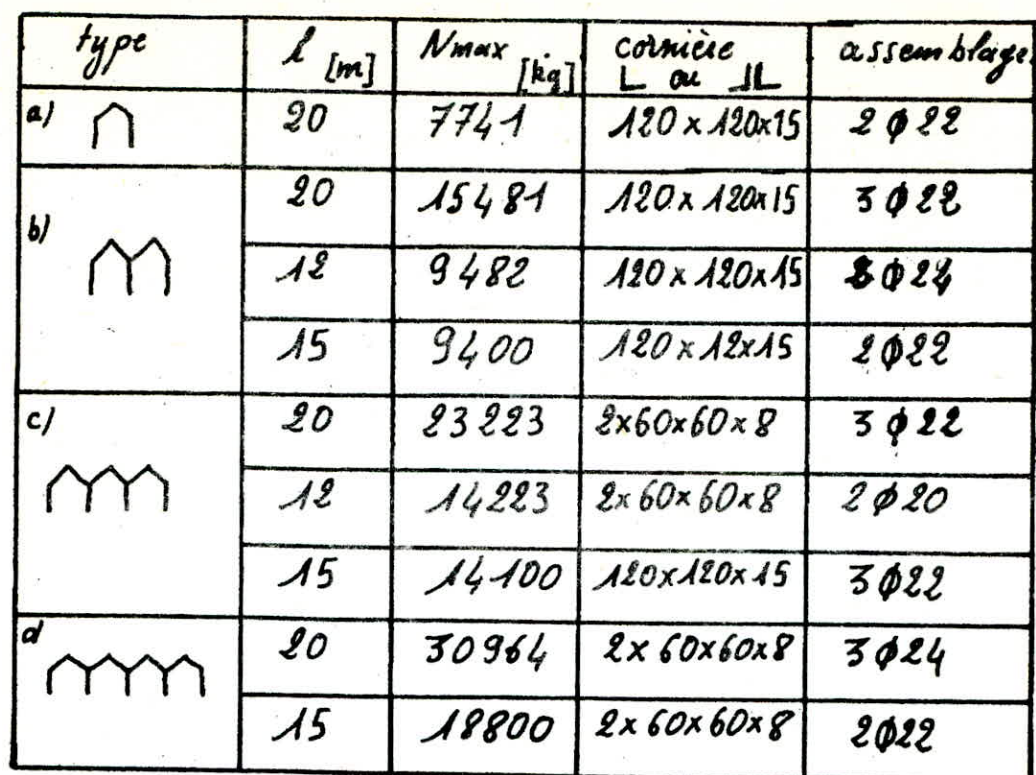 type l [m] Nmax [kg] cornière L ou ⅃L assemblage
a) 20 7741 120 x 120x15 2 ϕ 22
b) 20 15481 120 x 120x15 3 ϕ 22
12 9482 120 x 120x15 2 ϕ 24
15 9400 120 x 12x15 2 ϕ 22
c) 20 23223 2x60x60x8 3 ϕ 22
12 14223 2x60x60x8 2 ϕ 20
15 14100 120x120x15 3 ϕ 22
d 20 30964 2x60x60x8 3 ϕ 24
15 18800 2x60x60x8 2 ϕ 22